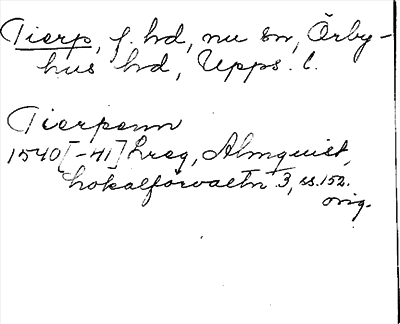 Tierp, f. hd, nu sn, Örby-
hus hd, Upps. l.
Tierpenn
1540[-41] Lreg, Almquist,
Lokalförvaltn 3, ss. 152.
orig.